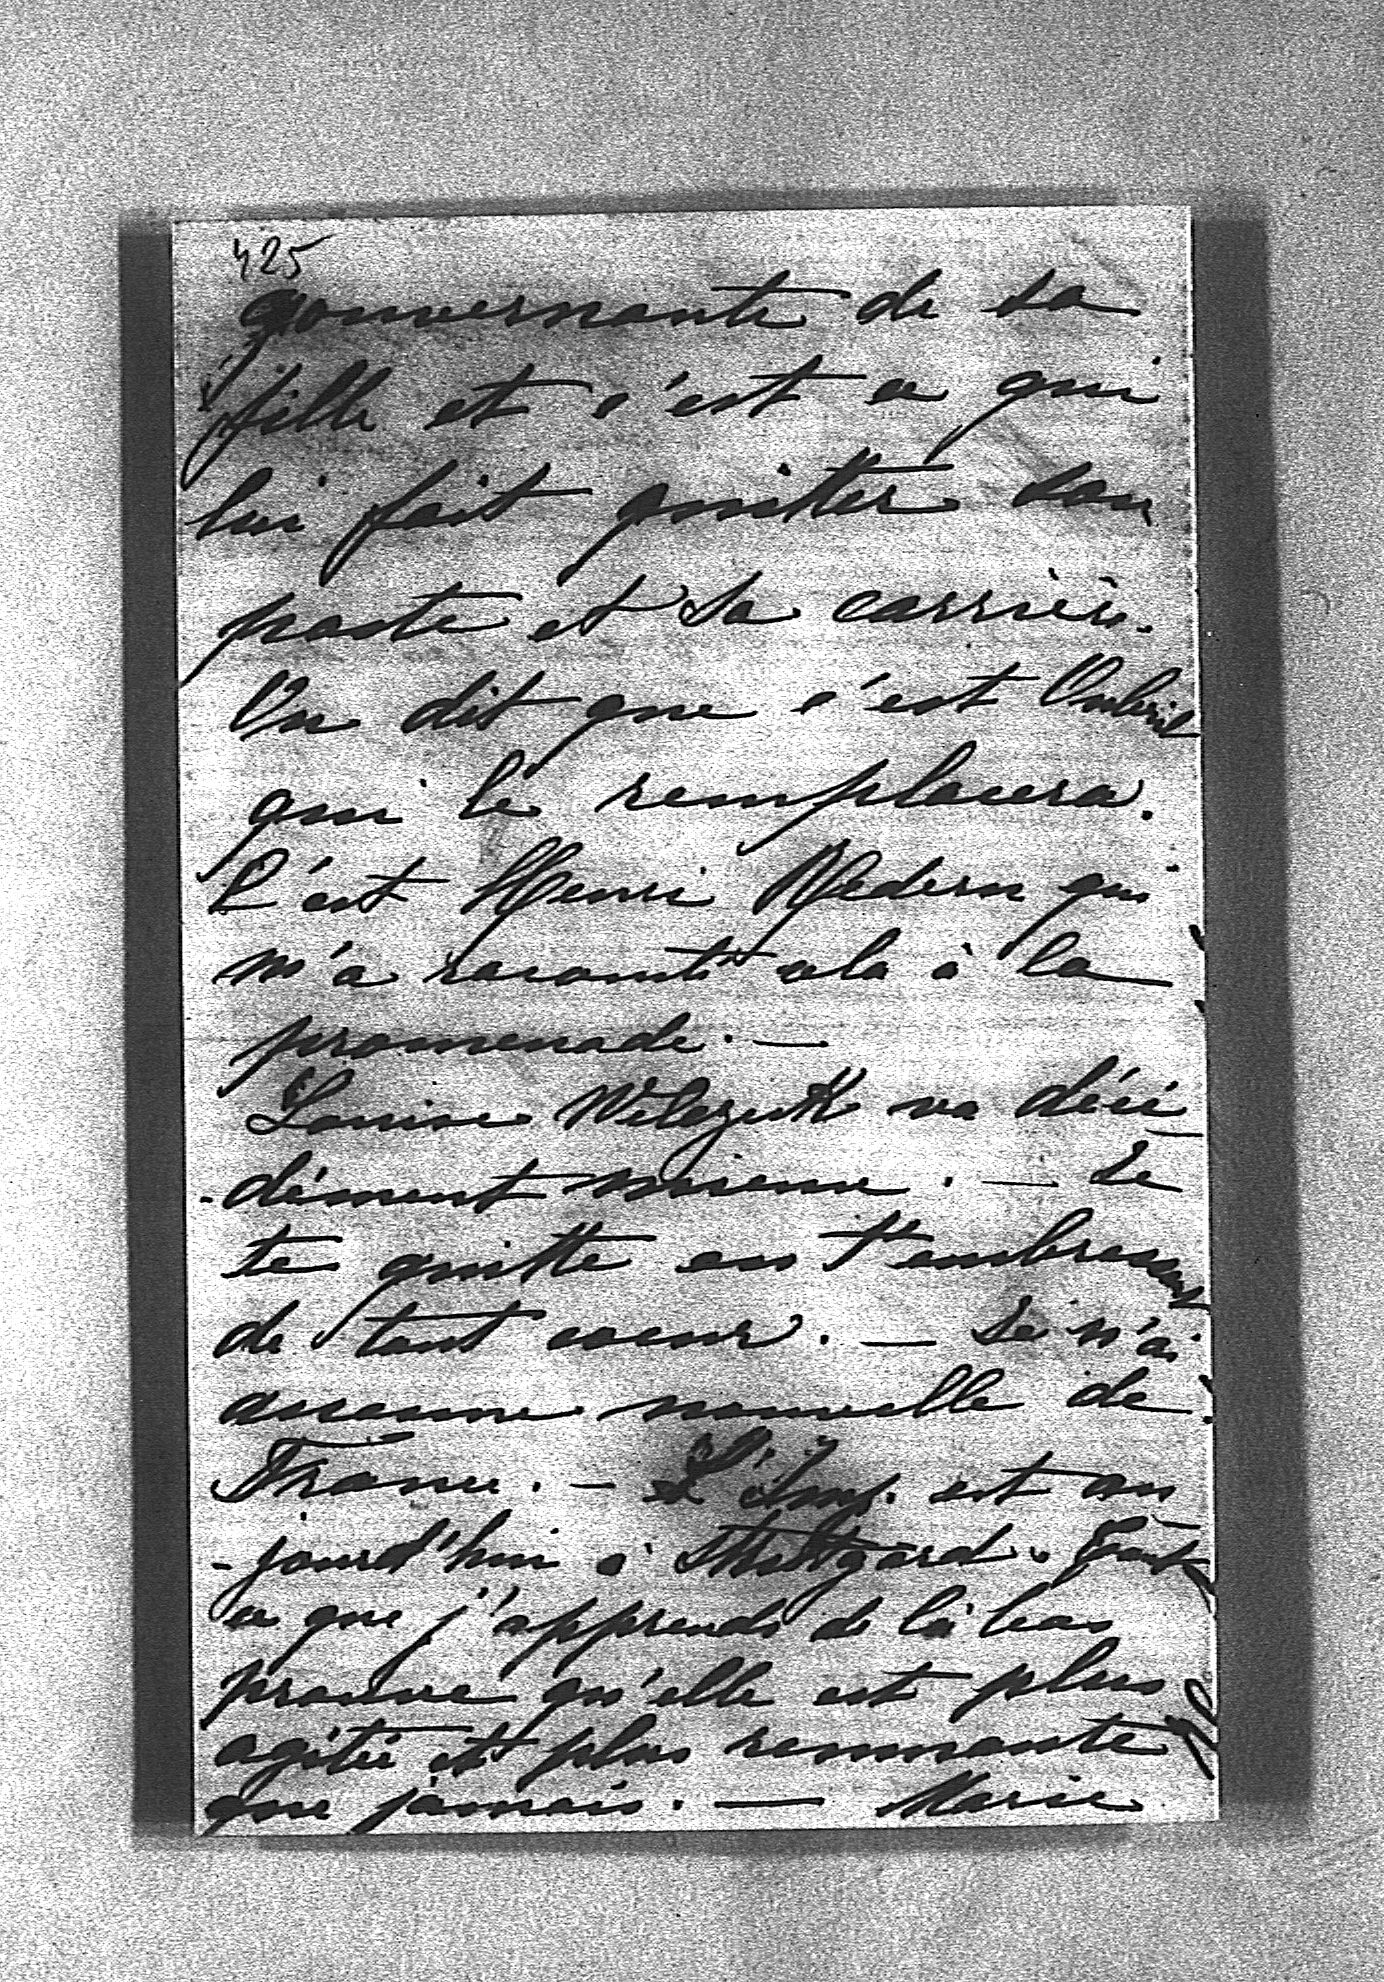 425
gouvernante de sa
fille et c'est ce qui
lui fait quitter son
poste et sa carrière.
On dit que c'est Oubril
qui le remplacera.
C'est Henri Redern qui
m'a raconté cela à la
promenade. —
Louise Wilczeck va déci
-dément mieux. — Je
te quitte en t'embrassant
de tout coeur. — Je n'ai
aucune nouvelle de
France. — L'Imp. est au
-jourd'hui à Stuttgard. Tout
ce que j'apprends de là bas
prouve qu'elle est plus
agitée et plus remuante
que jamais. — Marie